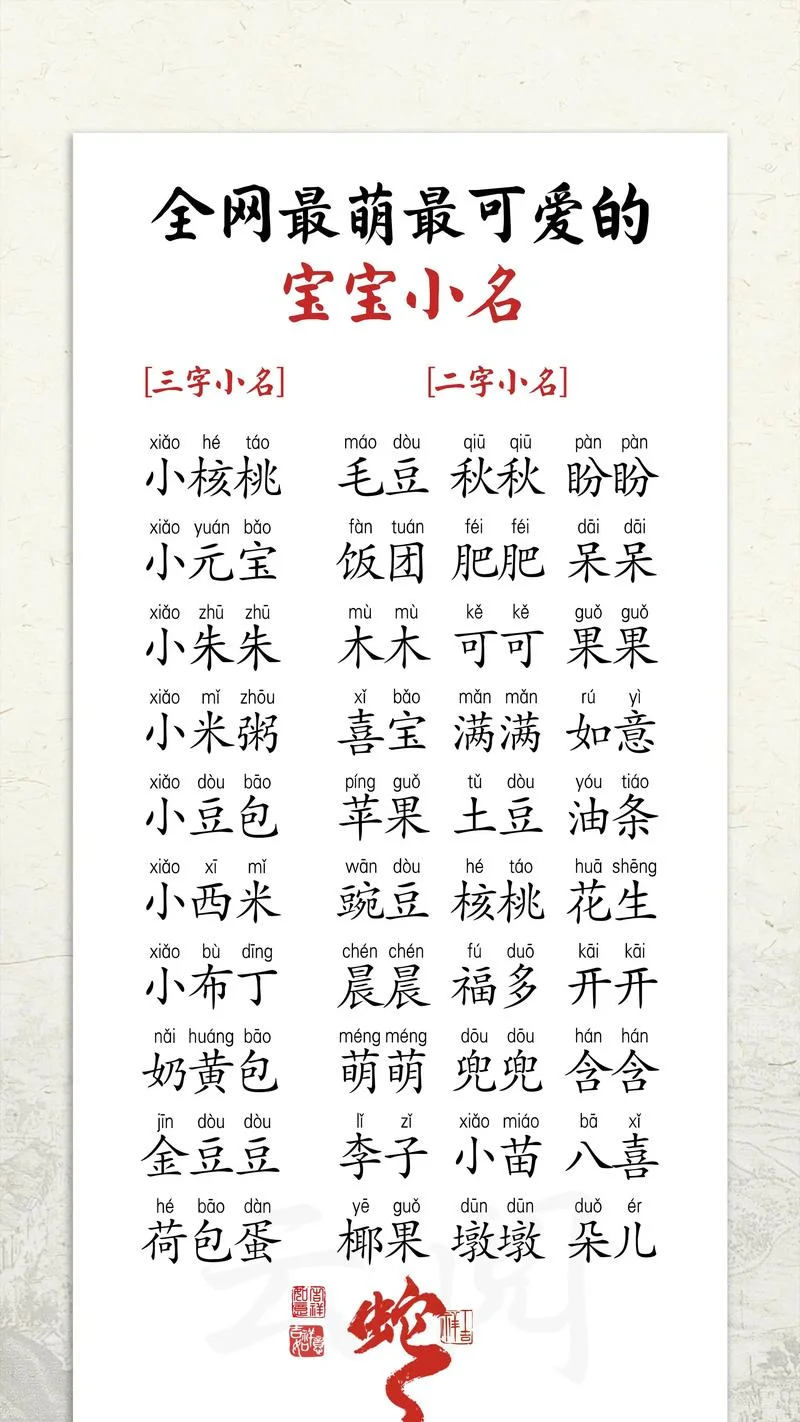 全网最萌最可爱的
宝宝小名
[三字小名] [二字小名]
xiǎo hé táo máo dòu qiū qiū pàn pàn
小核桃 毛豆 秋秋 盼盼
xiǎo yuán bǎo fàn tuán féi féi dāi dāi
小元宝 饭团 肥肥 呆呆
xiǎo zhū zhū mù mù kě kě guǒ guǒ
小朱朱 木木 可可 果果
xiǎo mǐ zhōu xǐ bǎo mǎn mǎn rú yì
小米粥 喜宝 满满 如意
xiǎo dòu bāo píng guǒ tǔ dòu yóu tiáo
小豆包 苹果 土豆 油条
xiǎo xī mǐ wān dòu hé táo huā shēng
小西米 豌豆 核桃 花生
xiǎo bù dīng chén chén fú duō kāi kāi
小布丁 晨晨 福多 开开
nǎi huáng bāo méng méng dōu dōu hán hán
奶黄包 萌萌 兜兜 含含
jīn dòu dòu lǐ zǐ xiǎo miáo bā xǐ
金豆豆 李子 小苗 八喜
hé bāo dàn yē guǒ dūn dūn duǒ ér
荷包蛋 椰果 墩墩 朵儿
云阅
蛇